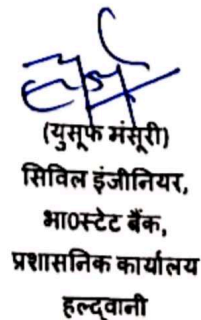 (युसूफ मंसूरी)
सिविल इंजीनियर,
भा0स्टेट बैंक,
प्रशासनिक कार्यालय
हल्द्वानी